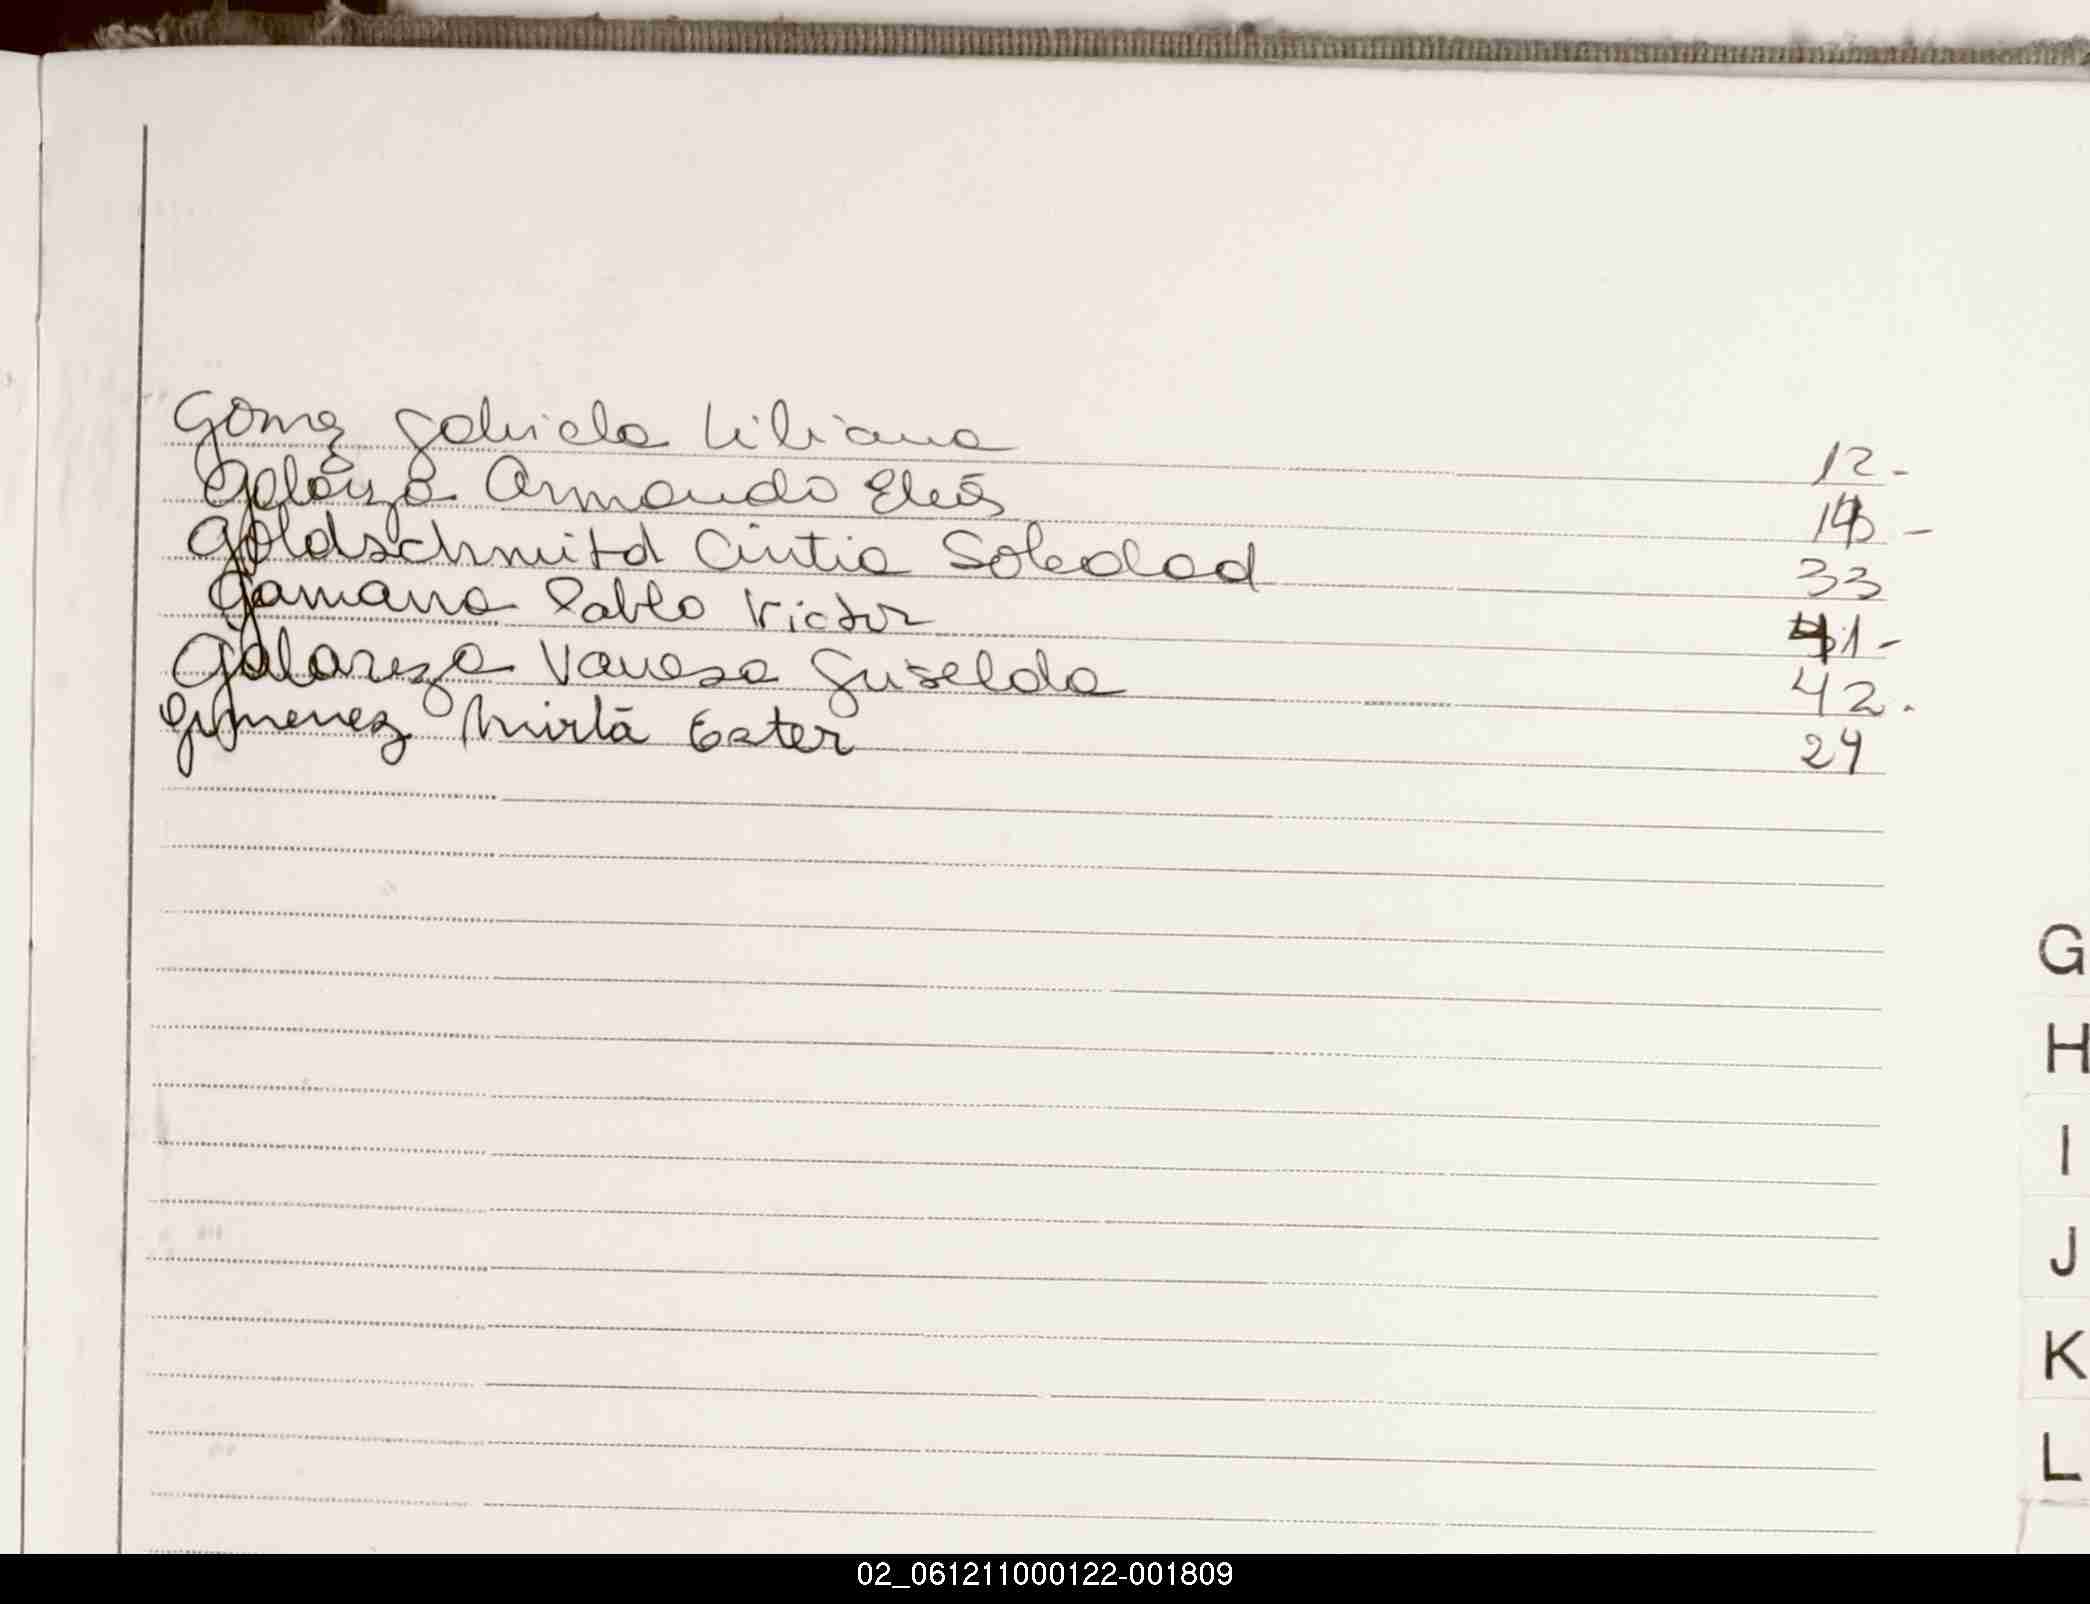 Gomez Gabriela Liliana 12-
Galarza Armando Elias -
Goldschmitd Cintia Soledad 33
Gamarra Pablo Victor 41-
Galarza Vanesa Guiselda 42.
Gimenez Mirta Ester 24
G
H
I
J
K
L
02_061211000122-001809